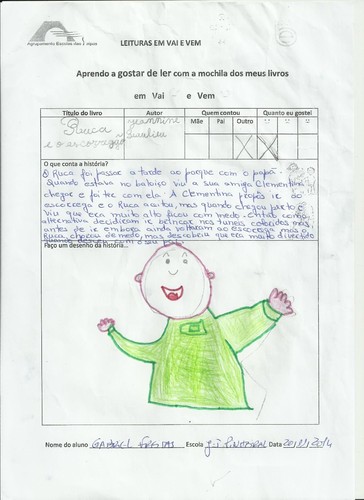 Agrupamento Escolas das Taipas
LEITURAS EM VAI E VEM
Aprendo a gostar de ler com a mochila dos meus livros
em Vai e Vem
Título do livro Autor Quem contou Quanto eu gostei
Mãe Pai Outro
Ruca jeannine
e o escorregão
O que conta a história?
O Ruca foi passear a tarde ao parque com o papá.
Quando estava no baloiço viu a sua amiga Clementina
chegar e foi ter com ela. A Clementina propôs ir ao
escorrega e o Ruca aceitou, mas quando chegou perto e
viu que era muito alto ficou com medo. Então como
alternativa decidiram ir brincar nos túneis coloridos mas,
antes de ir embora ainda voltaram ao escorrega mas o
Ruca, chorou de medo, mas descobriu que era muito divertido
quando desceu com o seu pai.
Faço um desenho da história...
Nome do aluno Escola Data